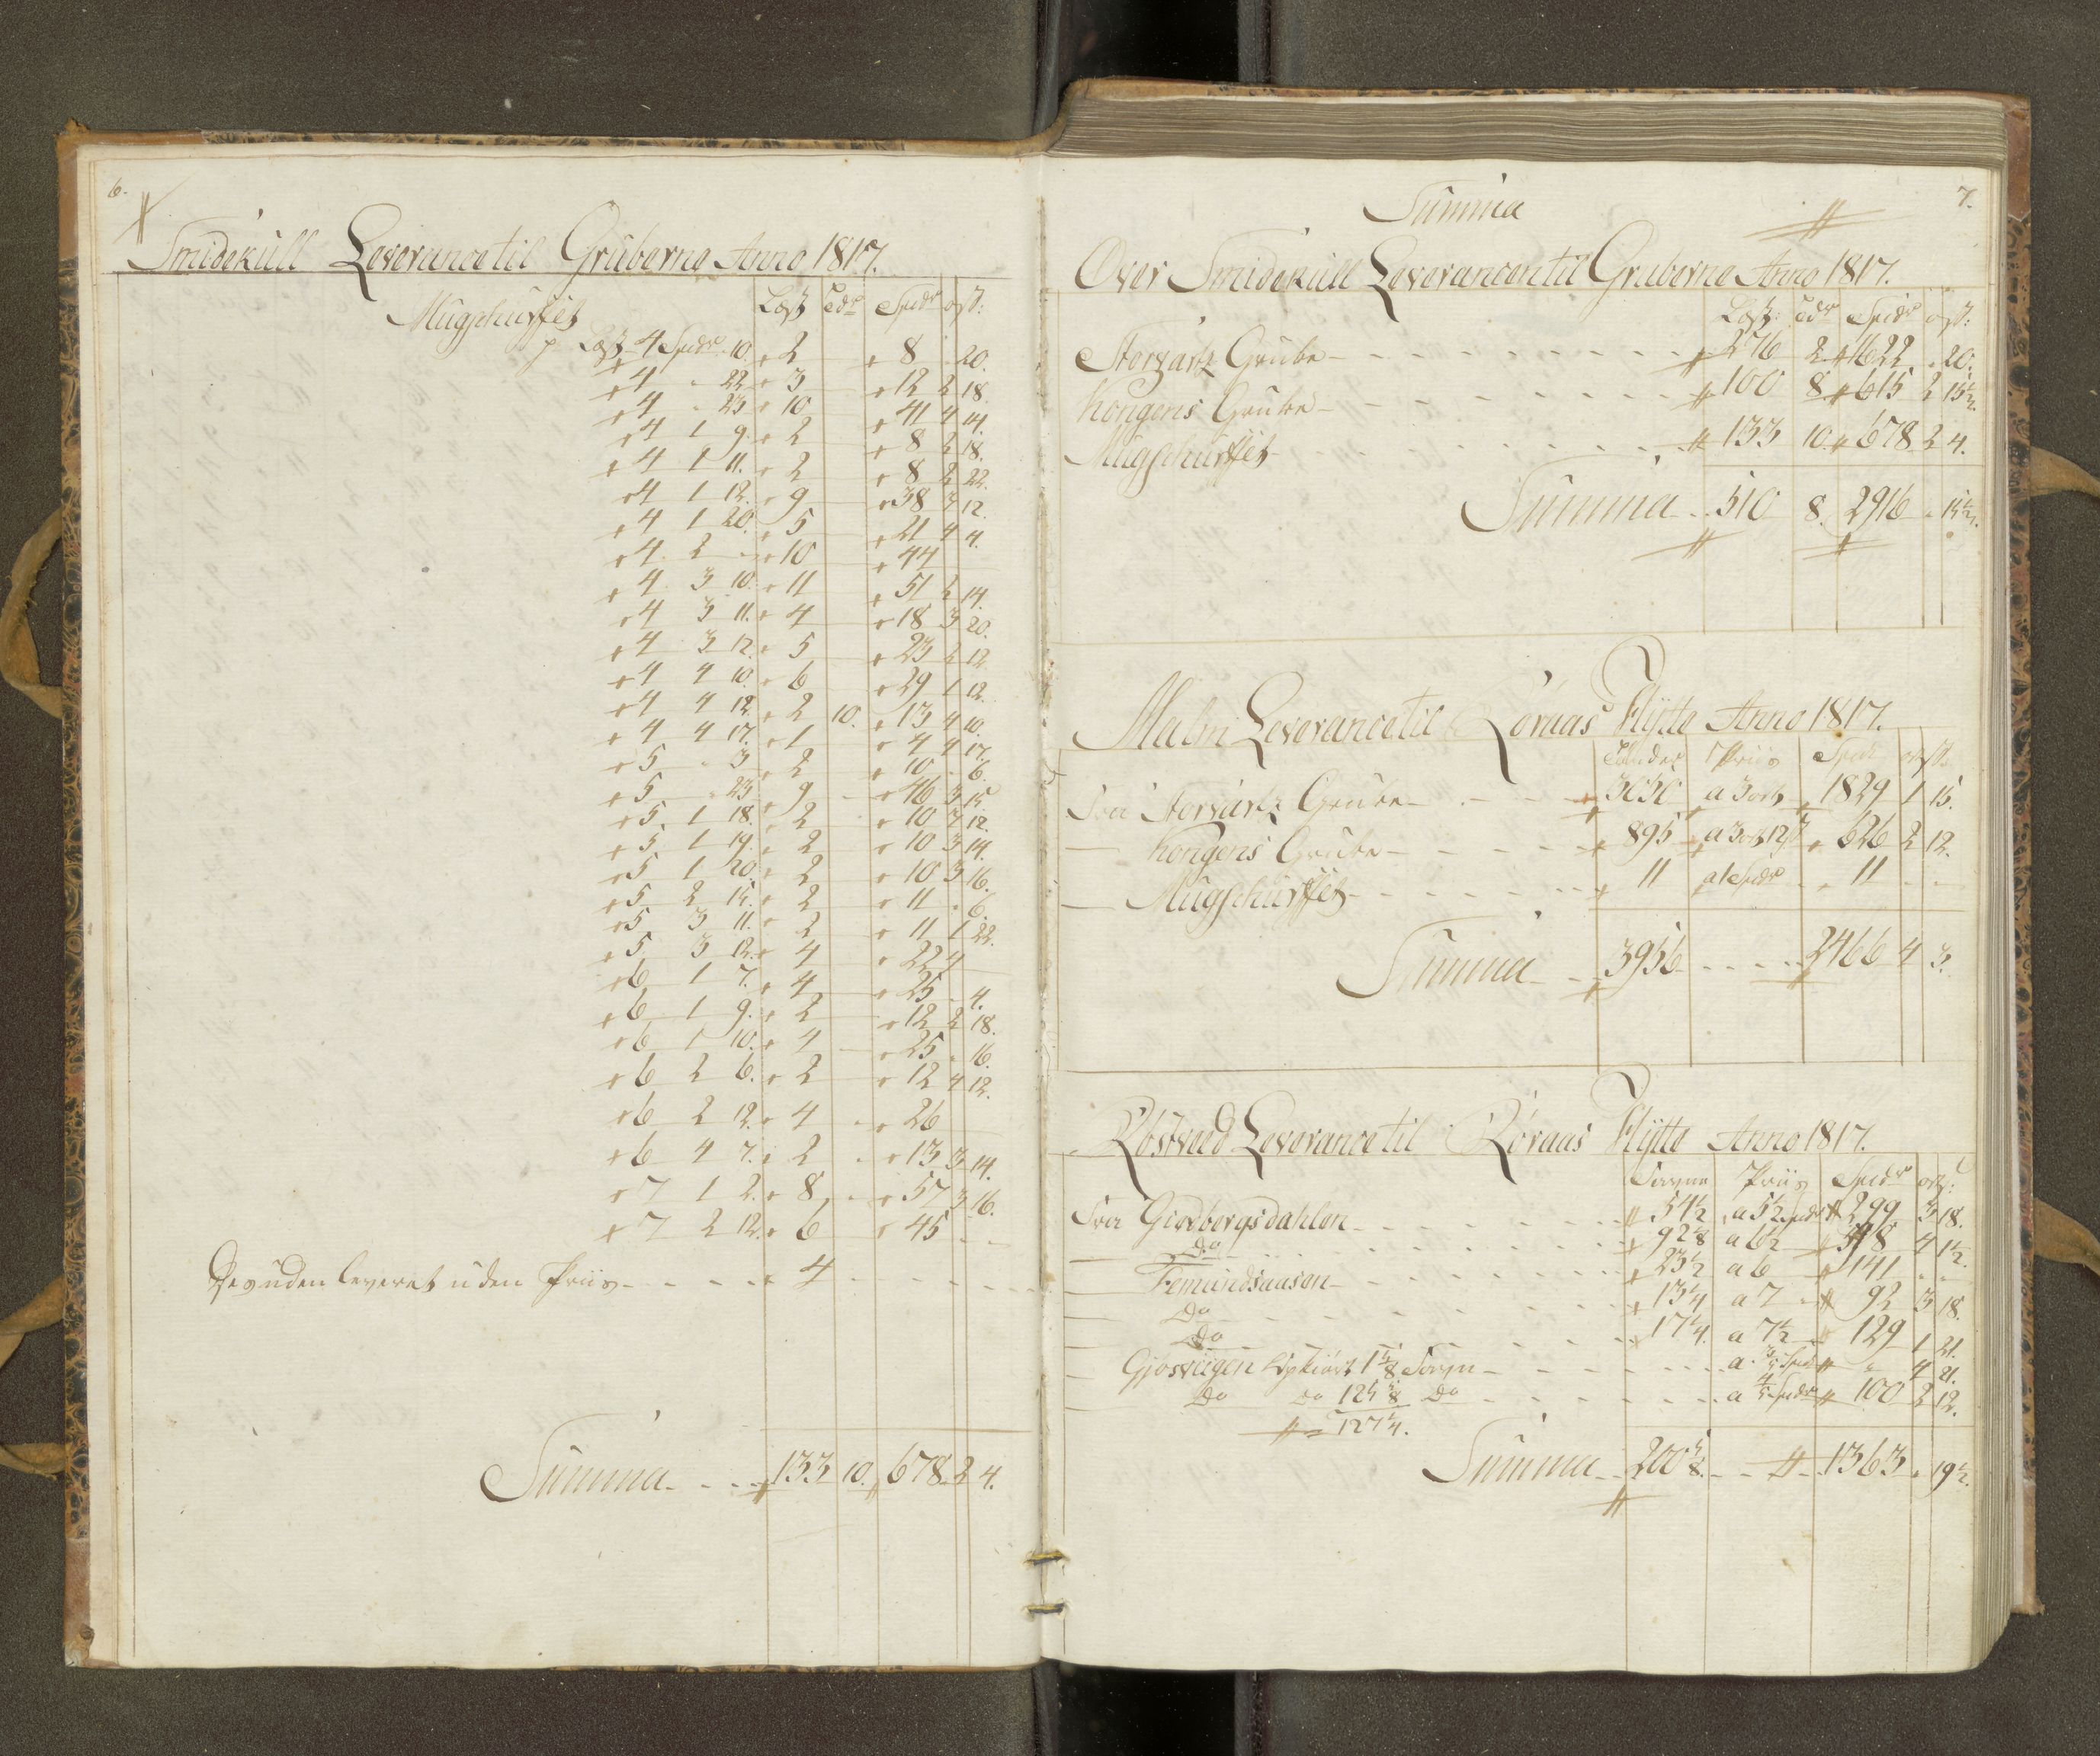 6.
Smidekull Leverance til Gruberne Anno 1817.
Mugskurffet
Læst Tdr Spdr ort ß:
p Læst 4 Spdr 10. 2 8 . 20.
4 . 22 3 12 2 18.
4 . 23 10 41 4 14.
4 1 9. 2 8 2 18.
4 1 11. 2 8 2 22.
4 1 12. 9 38 3 12.
4 1 20. 5 21 4 4.
4 2 . 10 44
4 3 10. 11 51 2 14.
4 3 11. 4 18 3 20.
4 3 12. 5 23 2 12
4 4 10. 6 29 1 12.
4 4 12. 2 10. 13 4 10.
4 4 17. 1 4 4 17.
5 . 3 2 10 . 6.
5 . 23 9 46 3 15
5 1 18. 2 10 3 12.
5 1 19. 2 10 3 14.
5 1 20. 2 10 3 16.
5 2 15. 2 11 . 6.
5 3 11. 2 11 1 22.
5 3 12. 4 22 4
6 1 7. 4 25 . 4.
6 1 9. 2 12 2 18.
6 1 10. 4 25 . 16.
6 2 6. 2 12 4 12.
6 2 12. 4 26
6 4 7. 2 13 3 14.
7 1 2. 8 57 3 16.
7 2 12. 6 45
Desuden leveret uden Priis 4
Summa 133 10. 678 2 4.
7.
Summa
Over Smidekull Leverancen til Gruberne Anno 1817.
Læst: Tdr Spdr ort ß:
Storvartz Grube 276 2 1622 . 20.
Kongens Grube 100 8 615 2 15½.
Mugskurffet 133 10. 678 2 4.
Summa 510 8. 2916 . 15½.
Malm Leverance til Röraas Hytte Anno 1817.
Tönder Priis Spdr ort ß
Fra Storvartz Grube 3050 a 3 ort 1829 1 15.
Kongens Grube 895 a 3 ort 12 ß 626 2 12.
Mugskurffet 11 a 1 Spdr 11
Summa 3956 2466 4 3.
Röstved Leverance til Röraas Hytte Anno 1817.
Favne Priis Spdr ort ß:
Fra Gierbergsdahlen 54½ a 5½ Spdr 299 3 18.
Do 92⅛ a 6½ 598 4 1½.
Femundsaasen 23½ a 6 141
Do 13¼ a 7 92 3 18.
Do 17¼. a 7½ 129 1 21.
Gjösvigen Opkiört 1⅝ Favn a ⅗ Spdr 4 21.
Do Do 125⅝ Do a ⅘ Spdr 100 2 12.
127¼.
Summa 200⅝. 1363 . 19½.